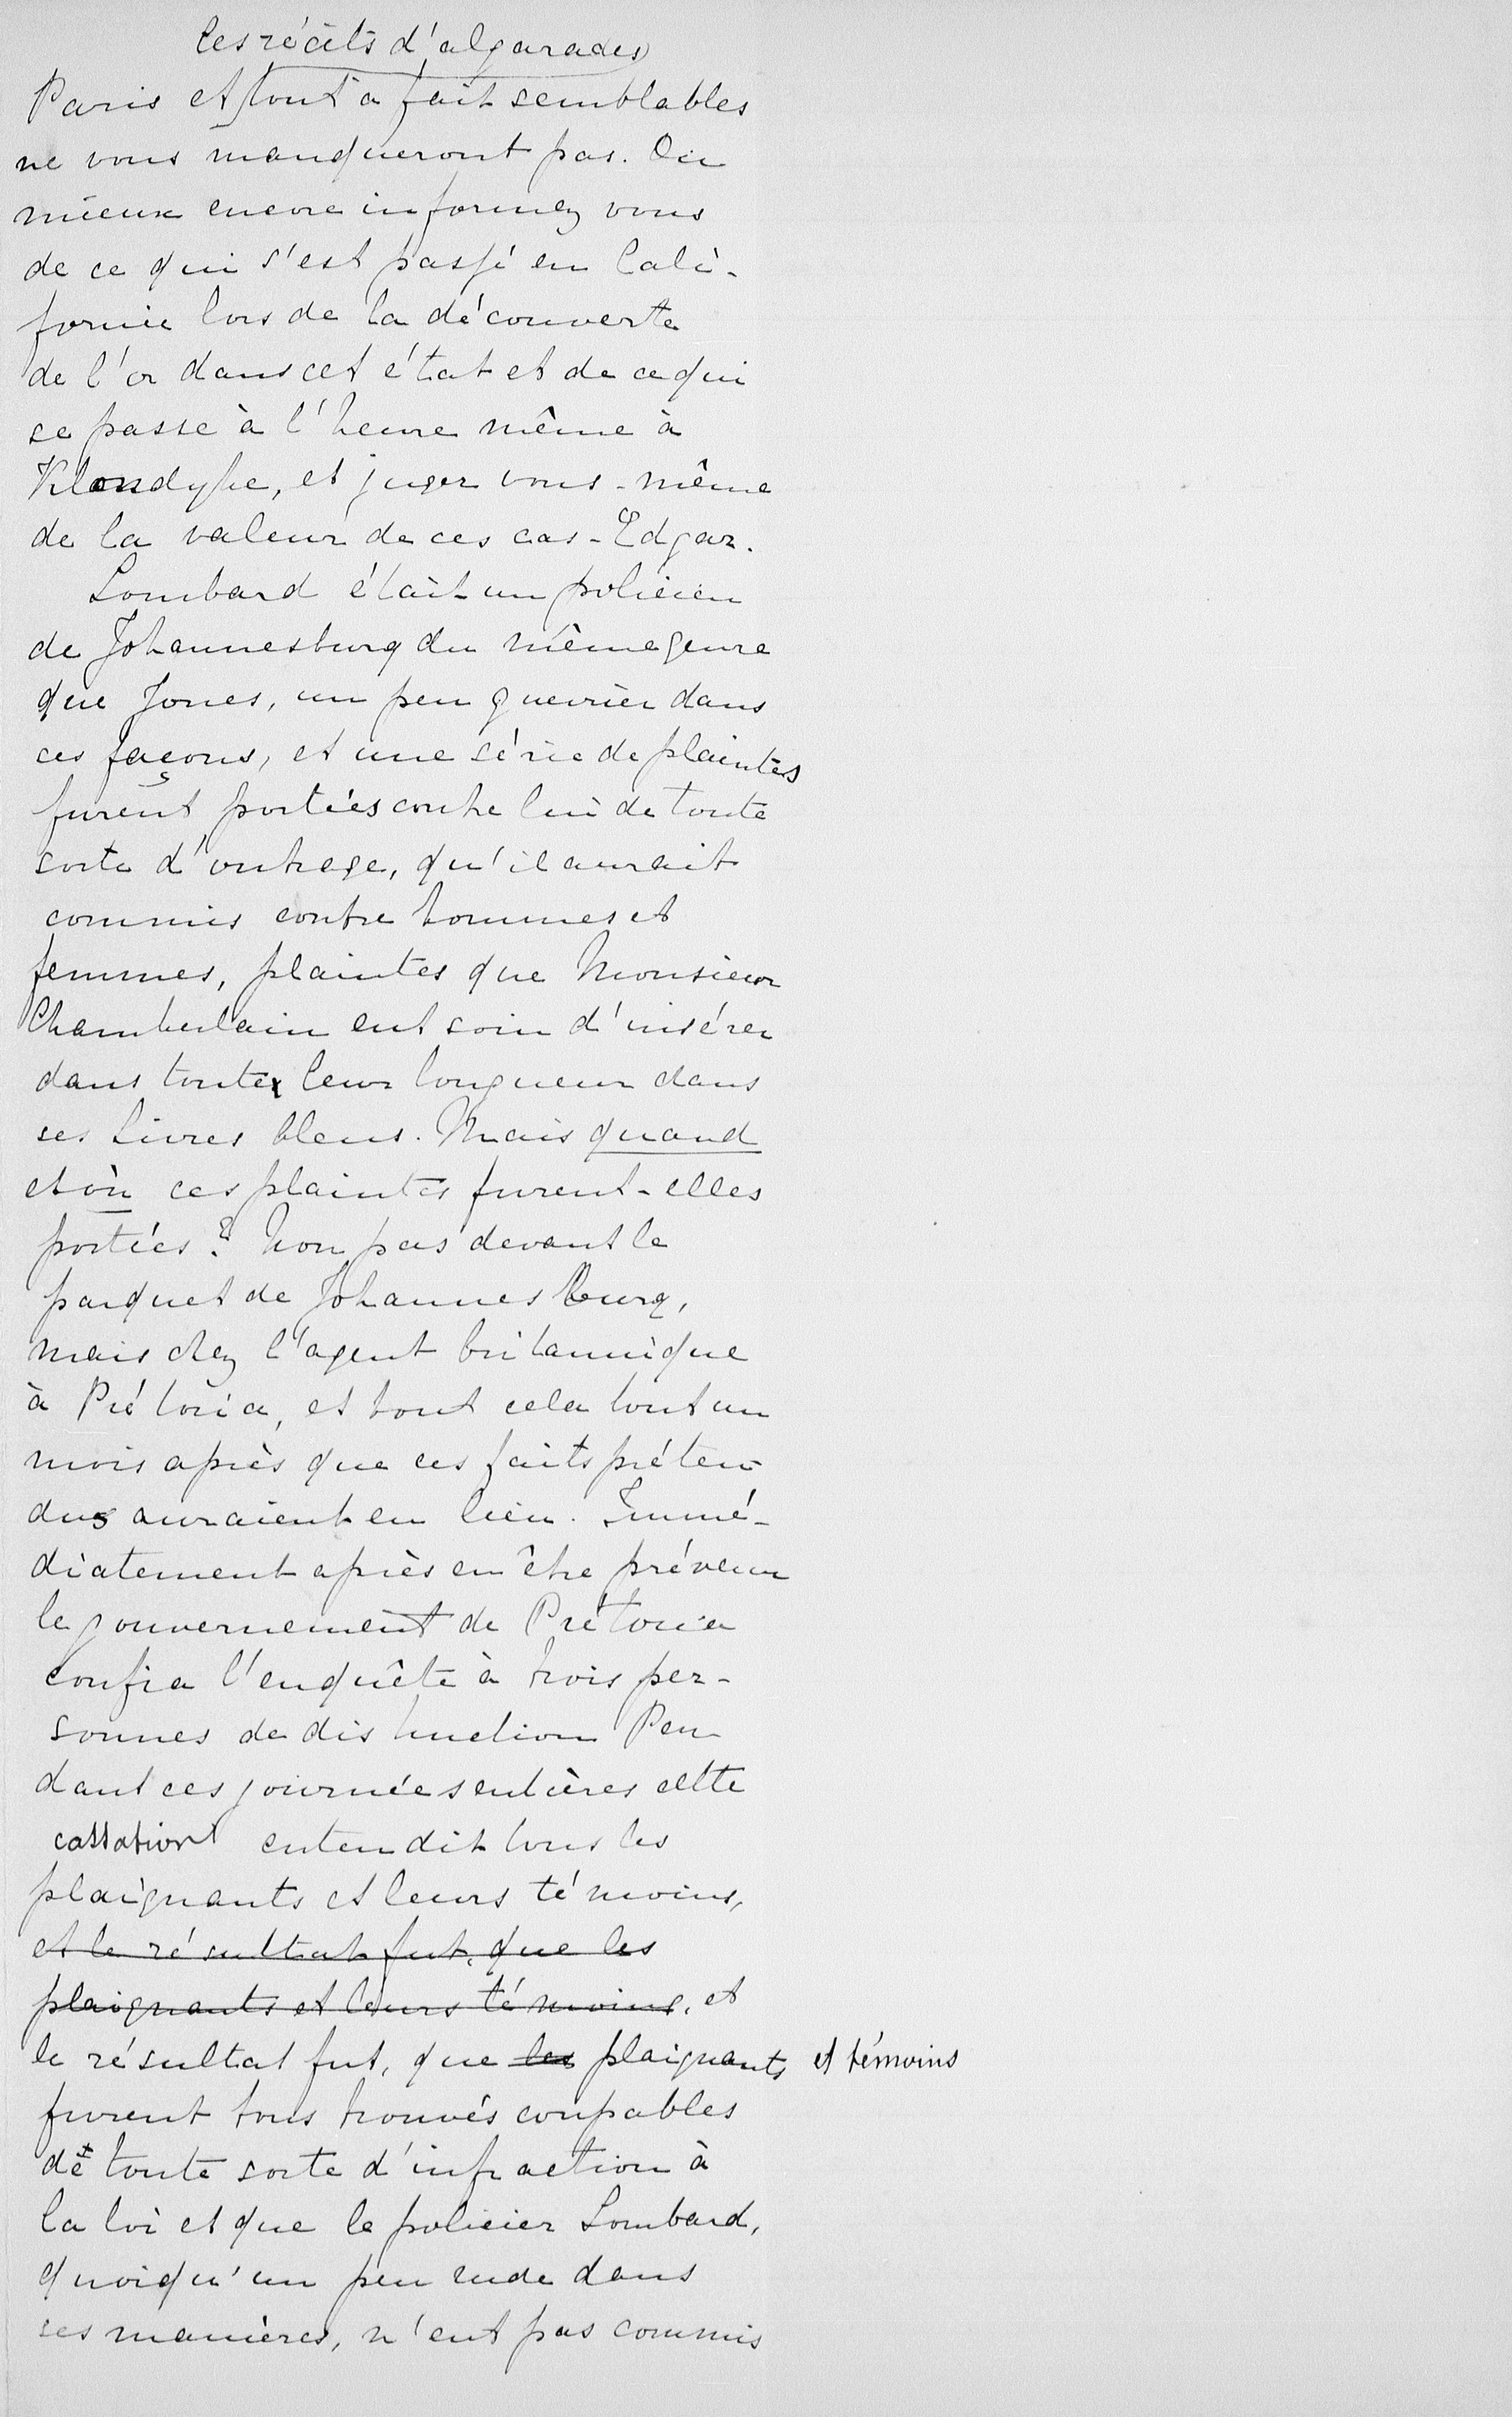 les récits d'algarades
Paris et tout à fait semblables
ne vous manqueront pas. Ou
mieux encore informez vous
de ce qui s'est passé en Cali-
fornie lors de la découverte
de l'or dans cet état et de ce qui
se passe à l'heure même à
Klondyke, et juger vous-même
de la valeur de ces cas-Edgar.
Lombard était un policien
de Johannesburg du même genre
que Jones, un peu guerrier dans
ces façons, et une série de plaintes
furent portées contre lui de toute
sorte d'outrage, qu'il aurait
commis contre hommes et
femmes, plaintes que Monsieur
Chamberlain eut soin d'insérer
dans toute leur longueur dans
ses Livres bleus. Mais quand
et où ces plaintes furent-elles
portées? Non pas devant le
parquet de Johannesburg,
mais chez l'agent britannique
à Prétoria, et tout cela tout un
mois après que ces faits préten-
dus auraient eu lieu. Immé-
diatement après en être prévenu
le gouvernement de Prétoria
confia l'enquête à trois per-
sonnes de distinction Pen
dant ces journées entières cette
cassation entendit tous les
plaignants et leurs témoins,
et le résultat fut, que les
plaignants et leurs témoins, et
le résultat fut, que les plaignants et témoins
furent tous trouvés coupables
de toute sorte d'infraction à
la loi et que le policier Lombard,
quoiqu'un peu rude dans
ses manières, n'eut pas commis